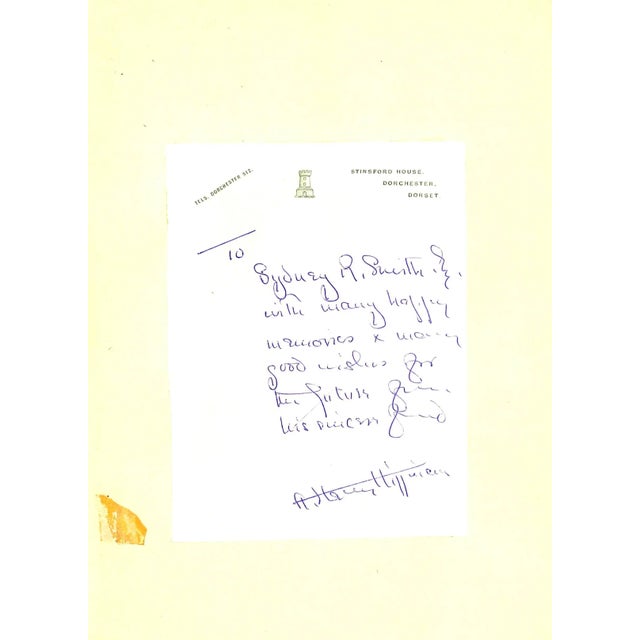 TELS. DORCHESTER 912.
STINSFORD HOUSE.
DORCHESTER,
DORSET.
To
Sydney R. Smith. Esq.
with many happy
memories & many
good wishes for
the future from
his sincere friend
A. Henry Higginson